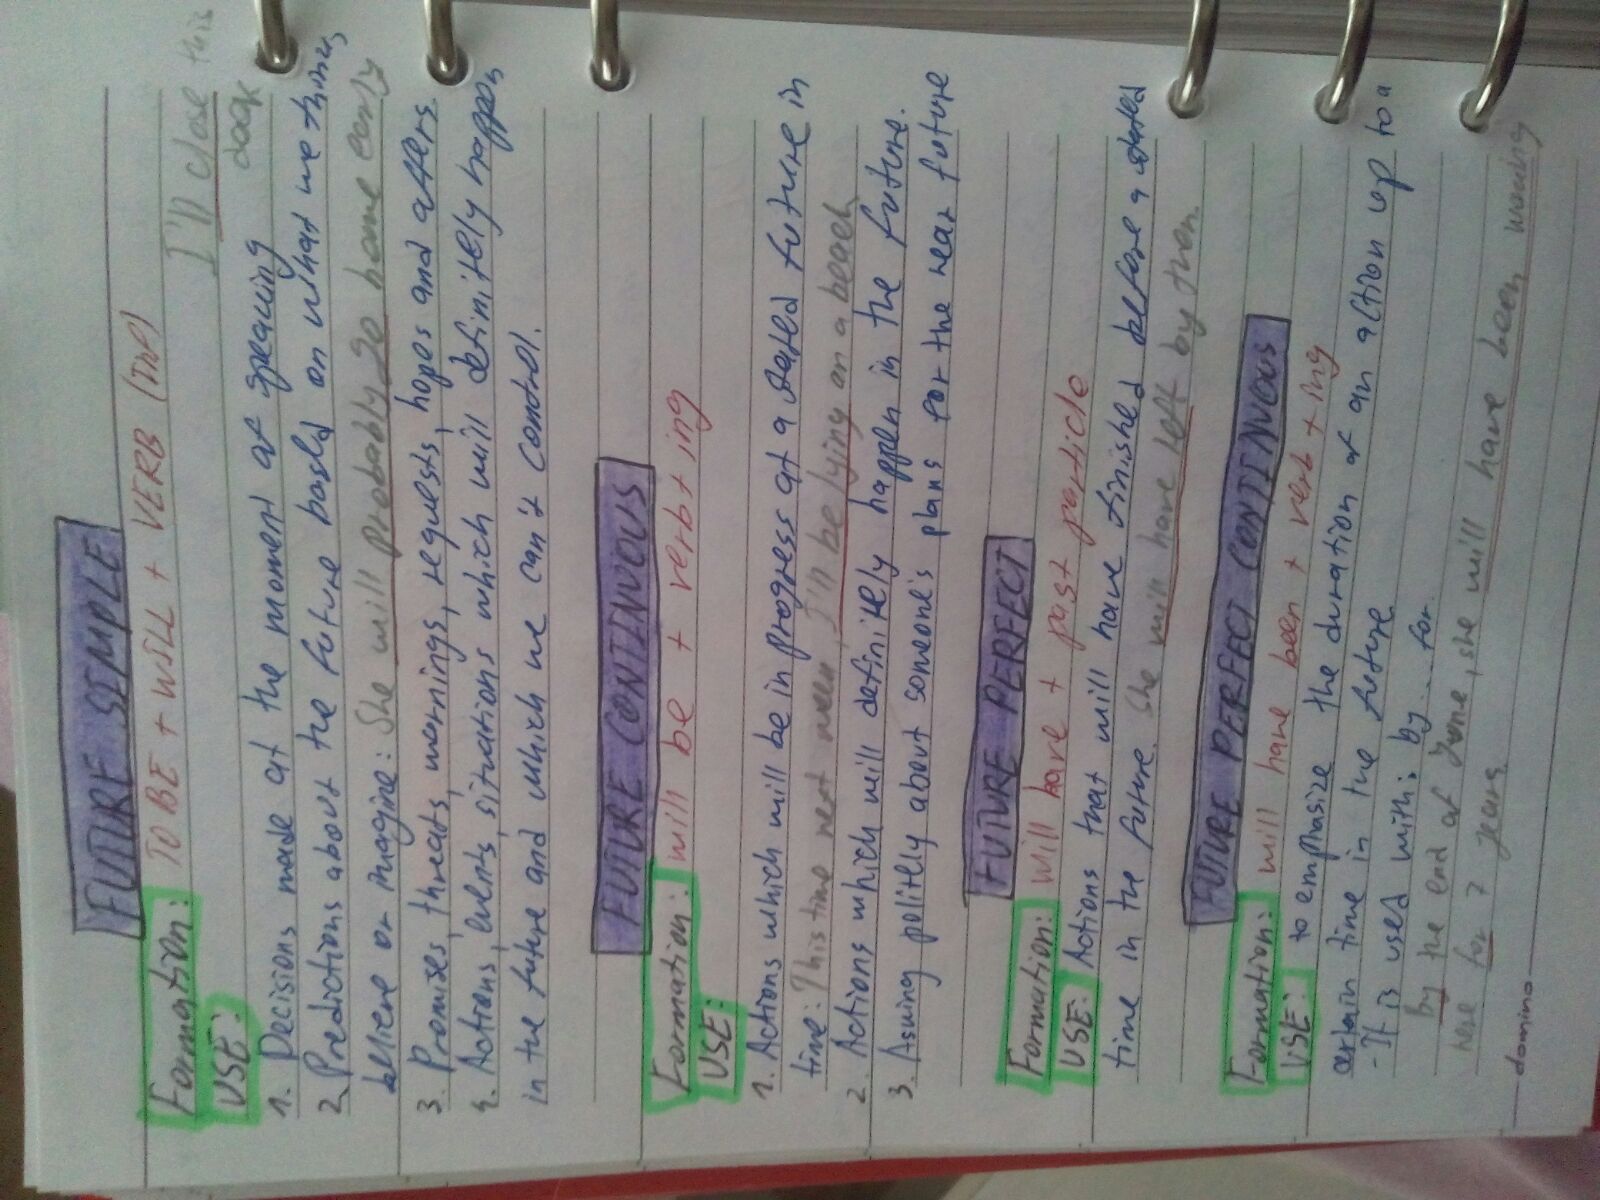 FUTURE SIMPLE
Formation: TO BE + WILL + VERB (Inf)
I'll close this
door
USE:
1. Decisions made at the moment of speaking
2. Predictions about the future based on what we think,
believe or imagine: She will probably go home early
3. Promises, threats, warnings, requests, hopes and offers.
4. Actions, events, situations which will definitely happen
in the future and which we can't control.
FUTURE CONTINUOUS
Formation: will be + verb + ing
USE:
1. Actions which will be in progress at a stated future in
time: This time next week, I'll be lying on a beach
2. Actions which will definitely happen in the future.
3. Asking politely about someone's plans for the near future
FUTURE PERFECT
Formation: will have + past particle
USE: Actions that will have finished before a stated
time in the future. She will have left by then.
FUTURE PERFECT CONTINUOUS
Formation: will have been + verb + ing
USE: to emphasize the duration of an action up to a
certain time in the future
- It is used with: by... for
By the end of June, she will have been working
here for 7 years
domino